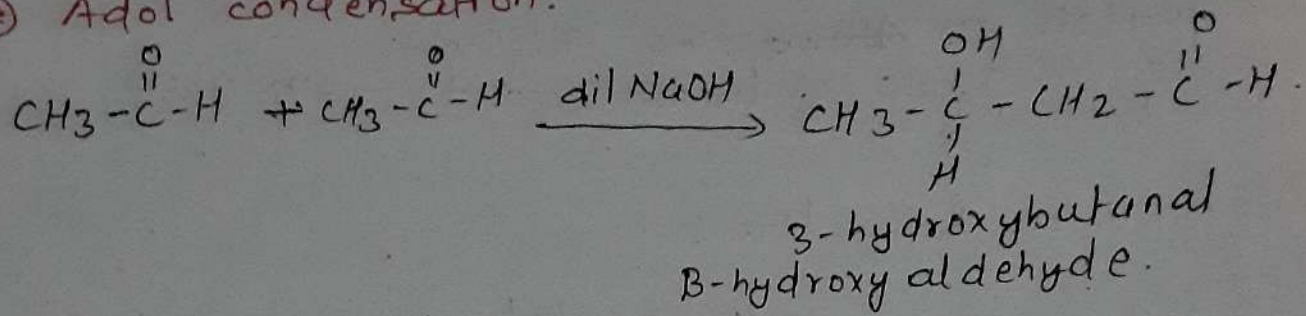 Adol condensation.
CH3-C(=O)-H + CH3-C(=O)-H dil NaOH → CH3-C(OH)(H)-CH2-C(=O)-H.
3-hydroxybutanal
B-hydroxy aldehyde.